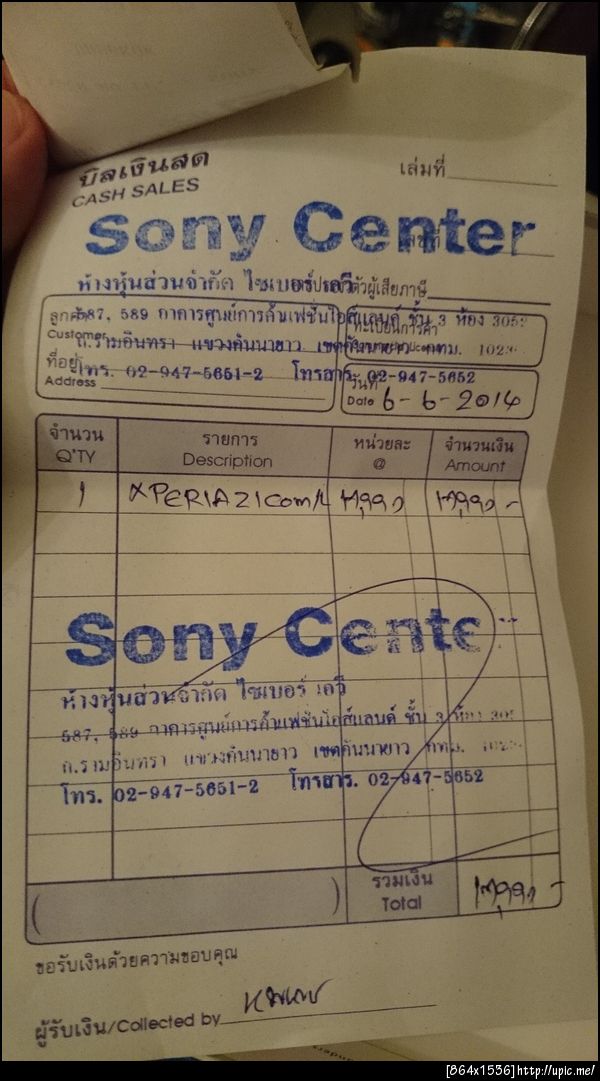 บิลเงินสด
CASH SALES
เล่มที่
Sony Center
เลขที่
ห้างหุ้นส่วนจำกัด ไซเบอร์ เอวี
ตัวผู้เสียภาษี
ลูกค้า
Customer
587, 589 อาคารศูนย์การค้าแฟชั่นไอส์แลนด์ ชั้น 3 ห้อง 305
ทะเบียนการค้า
ถ.รามอินทรา แขวงคันนายาว เขตคันนายาว กทม.
ที่อยู่
Address
โทร. 02-947-5651-2 โทรสาร. 02-947-5652
วันที่
Date 6-6-2014
จำนวน รายการ หน่วยละ จำนวนเงิน
Q'TY Description @ Amount
1 XPERIA Z1 Com
Sony Cente
ห้างหุ้นส่วนจำกัด ไซเบอร์ เอวี
587, 589 อาคารศูนย์การค้าแฟชั่นไอส์แลนด์ ชั้น 3 ห้อง 305
ถ.รามอินทรา แขวงคันนายาว เขตคันนายาว กทม.
โทร. 02-947-5651-2 โทรสาร. 02-947-5652
รวมเงิน
Total
ขอรับเงินด้วยความขอบคุณ
ผู้รับเงิน/Collected by
[864x1536]http://upic.me/